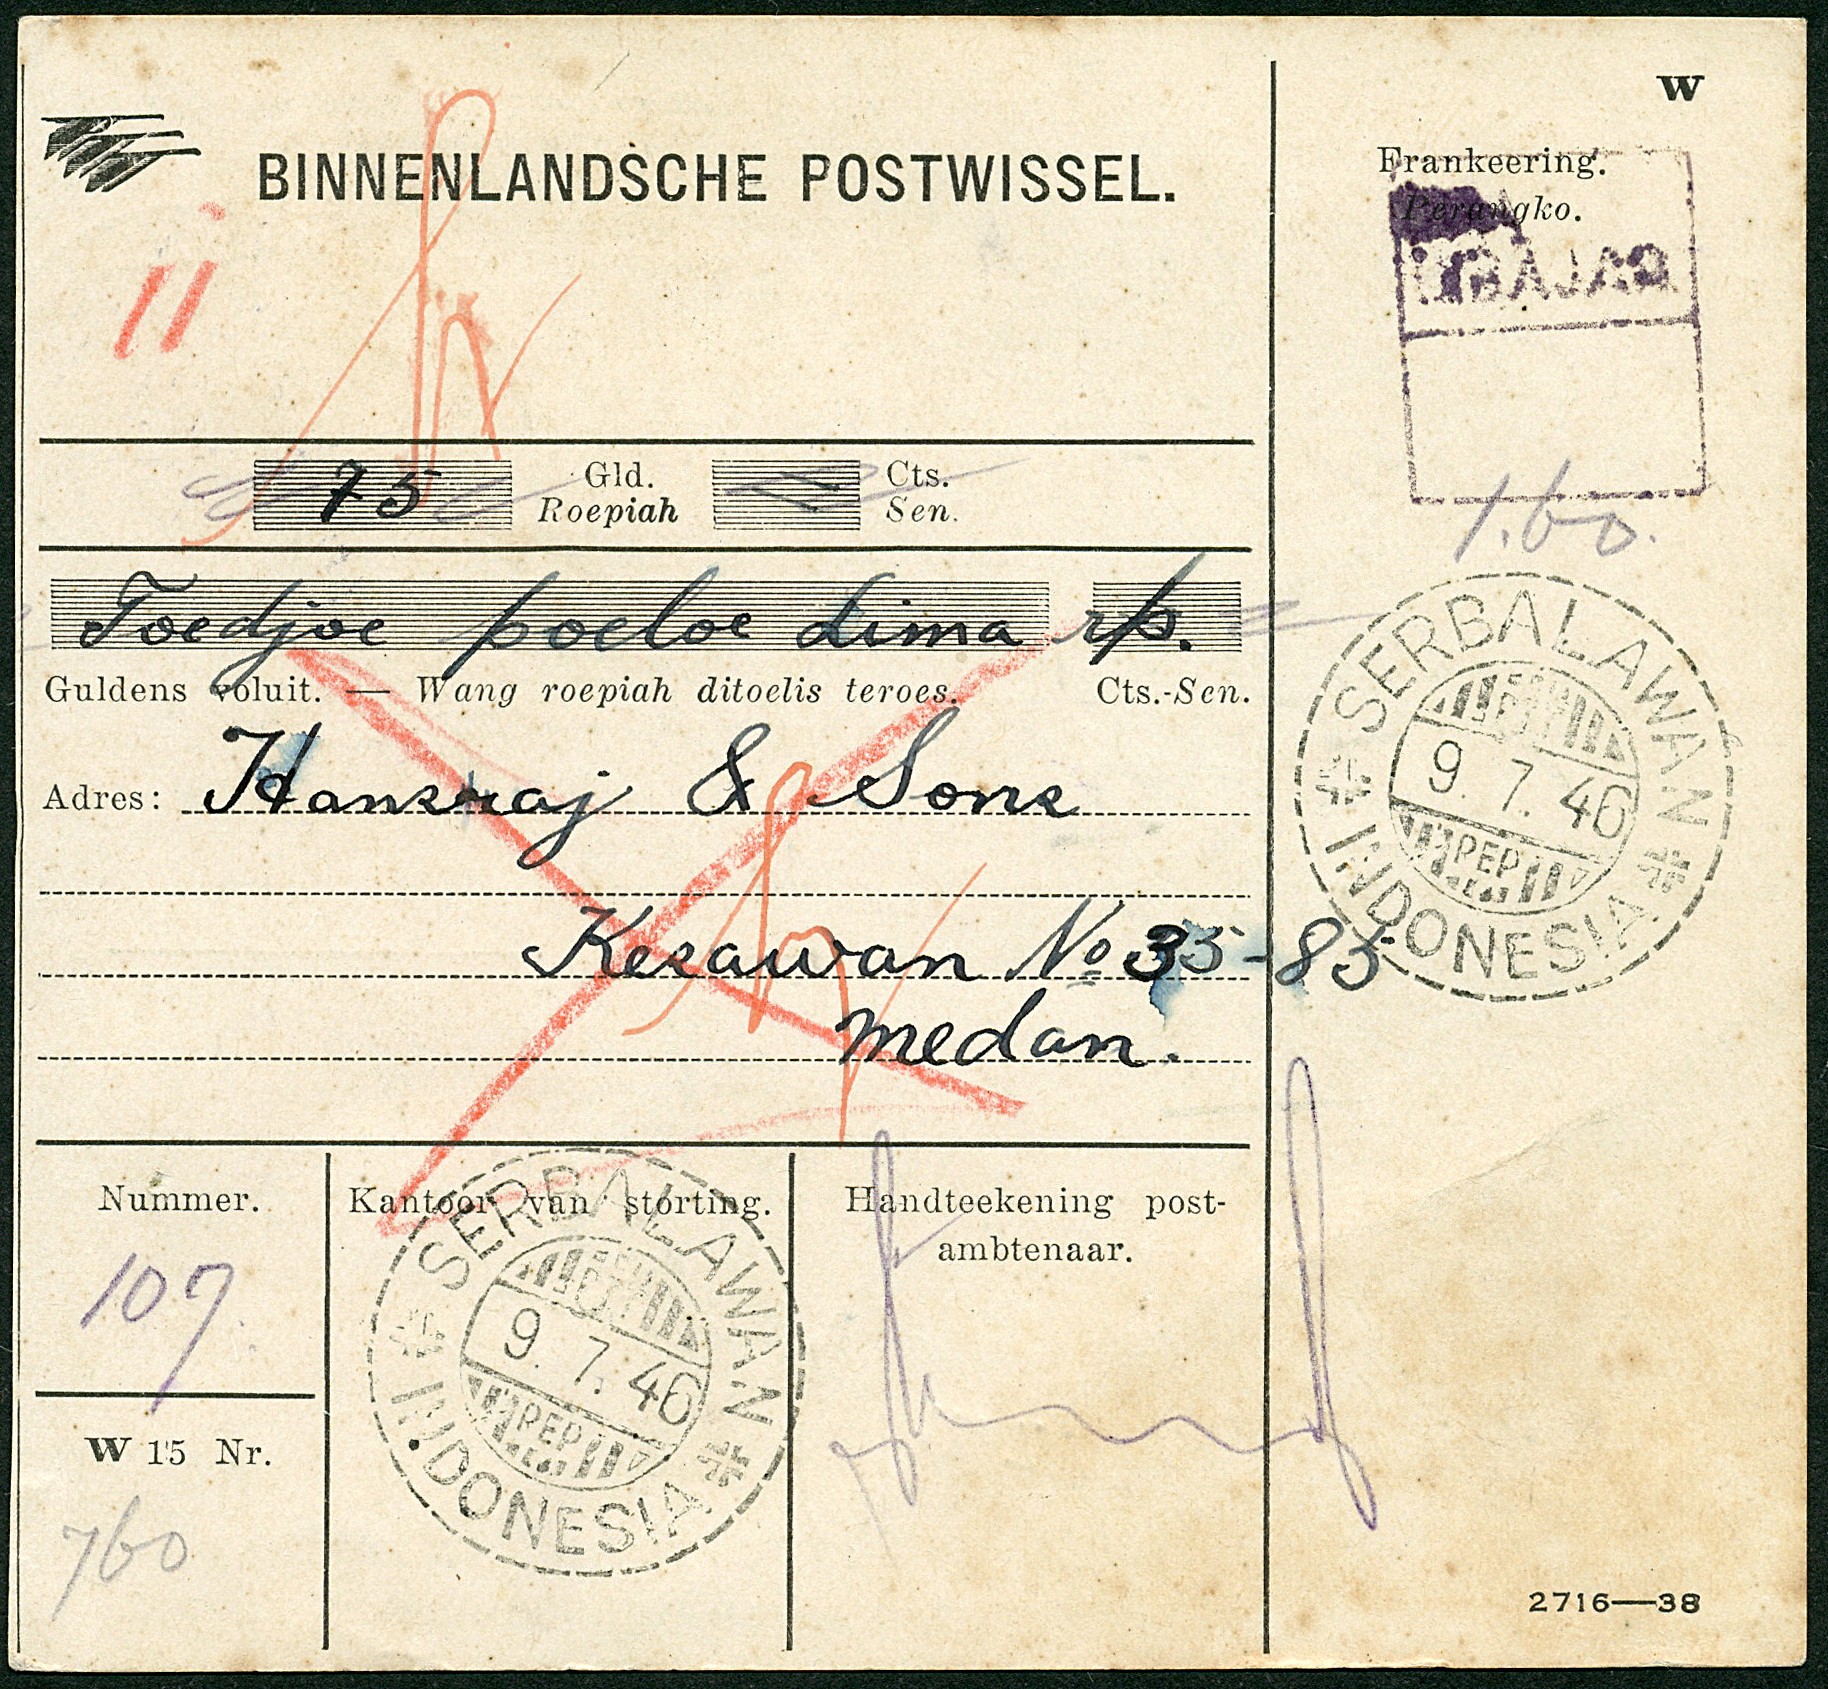 W
BINNENLANDSCHE POSTWISSEL.
Frankeering.
Perangko.
DIBAJAR
11
75 Gld. Cts.
Roepiah Sen.
1.60.
Toedjoe poeloe Lima rp.
Guldens voluit. — Wang roepiah ditoelis teroes. Cts.-Sen.
Adres: Hansraj & Sons
Kesawan No 35-85
Medan.
SERBALAWAN
9. 7. 46
PEP
INDONESIA
Nummer.
Kantoor van storting.
Handteekening post-
ambtenaar.
107.
SERBALAWAN
9. 7. 46
PEP
INDONESIA
W 15 Nr.
760
2716—38